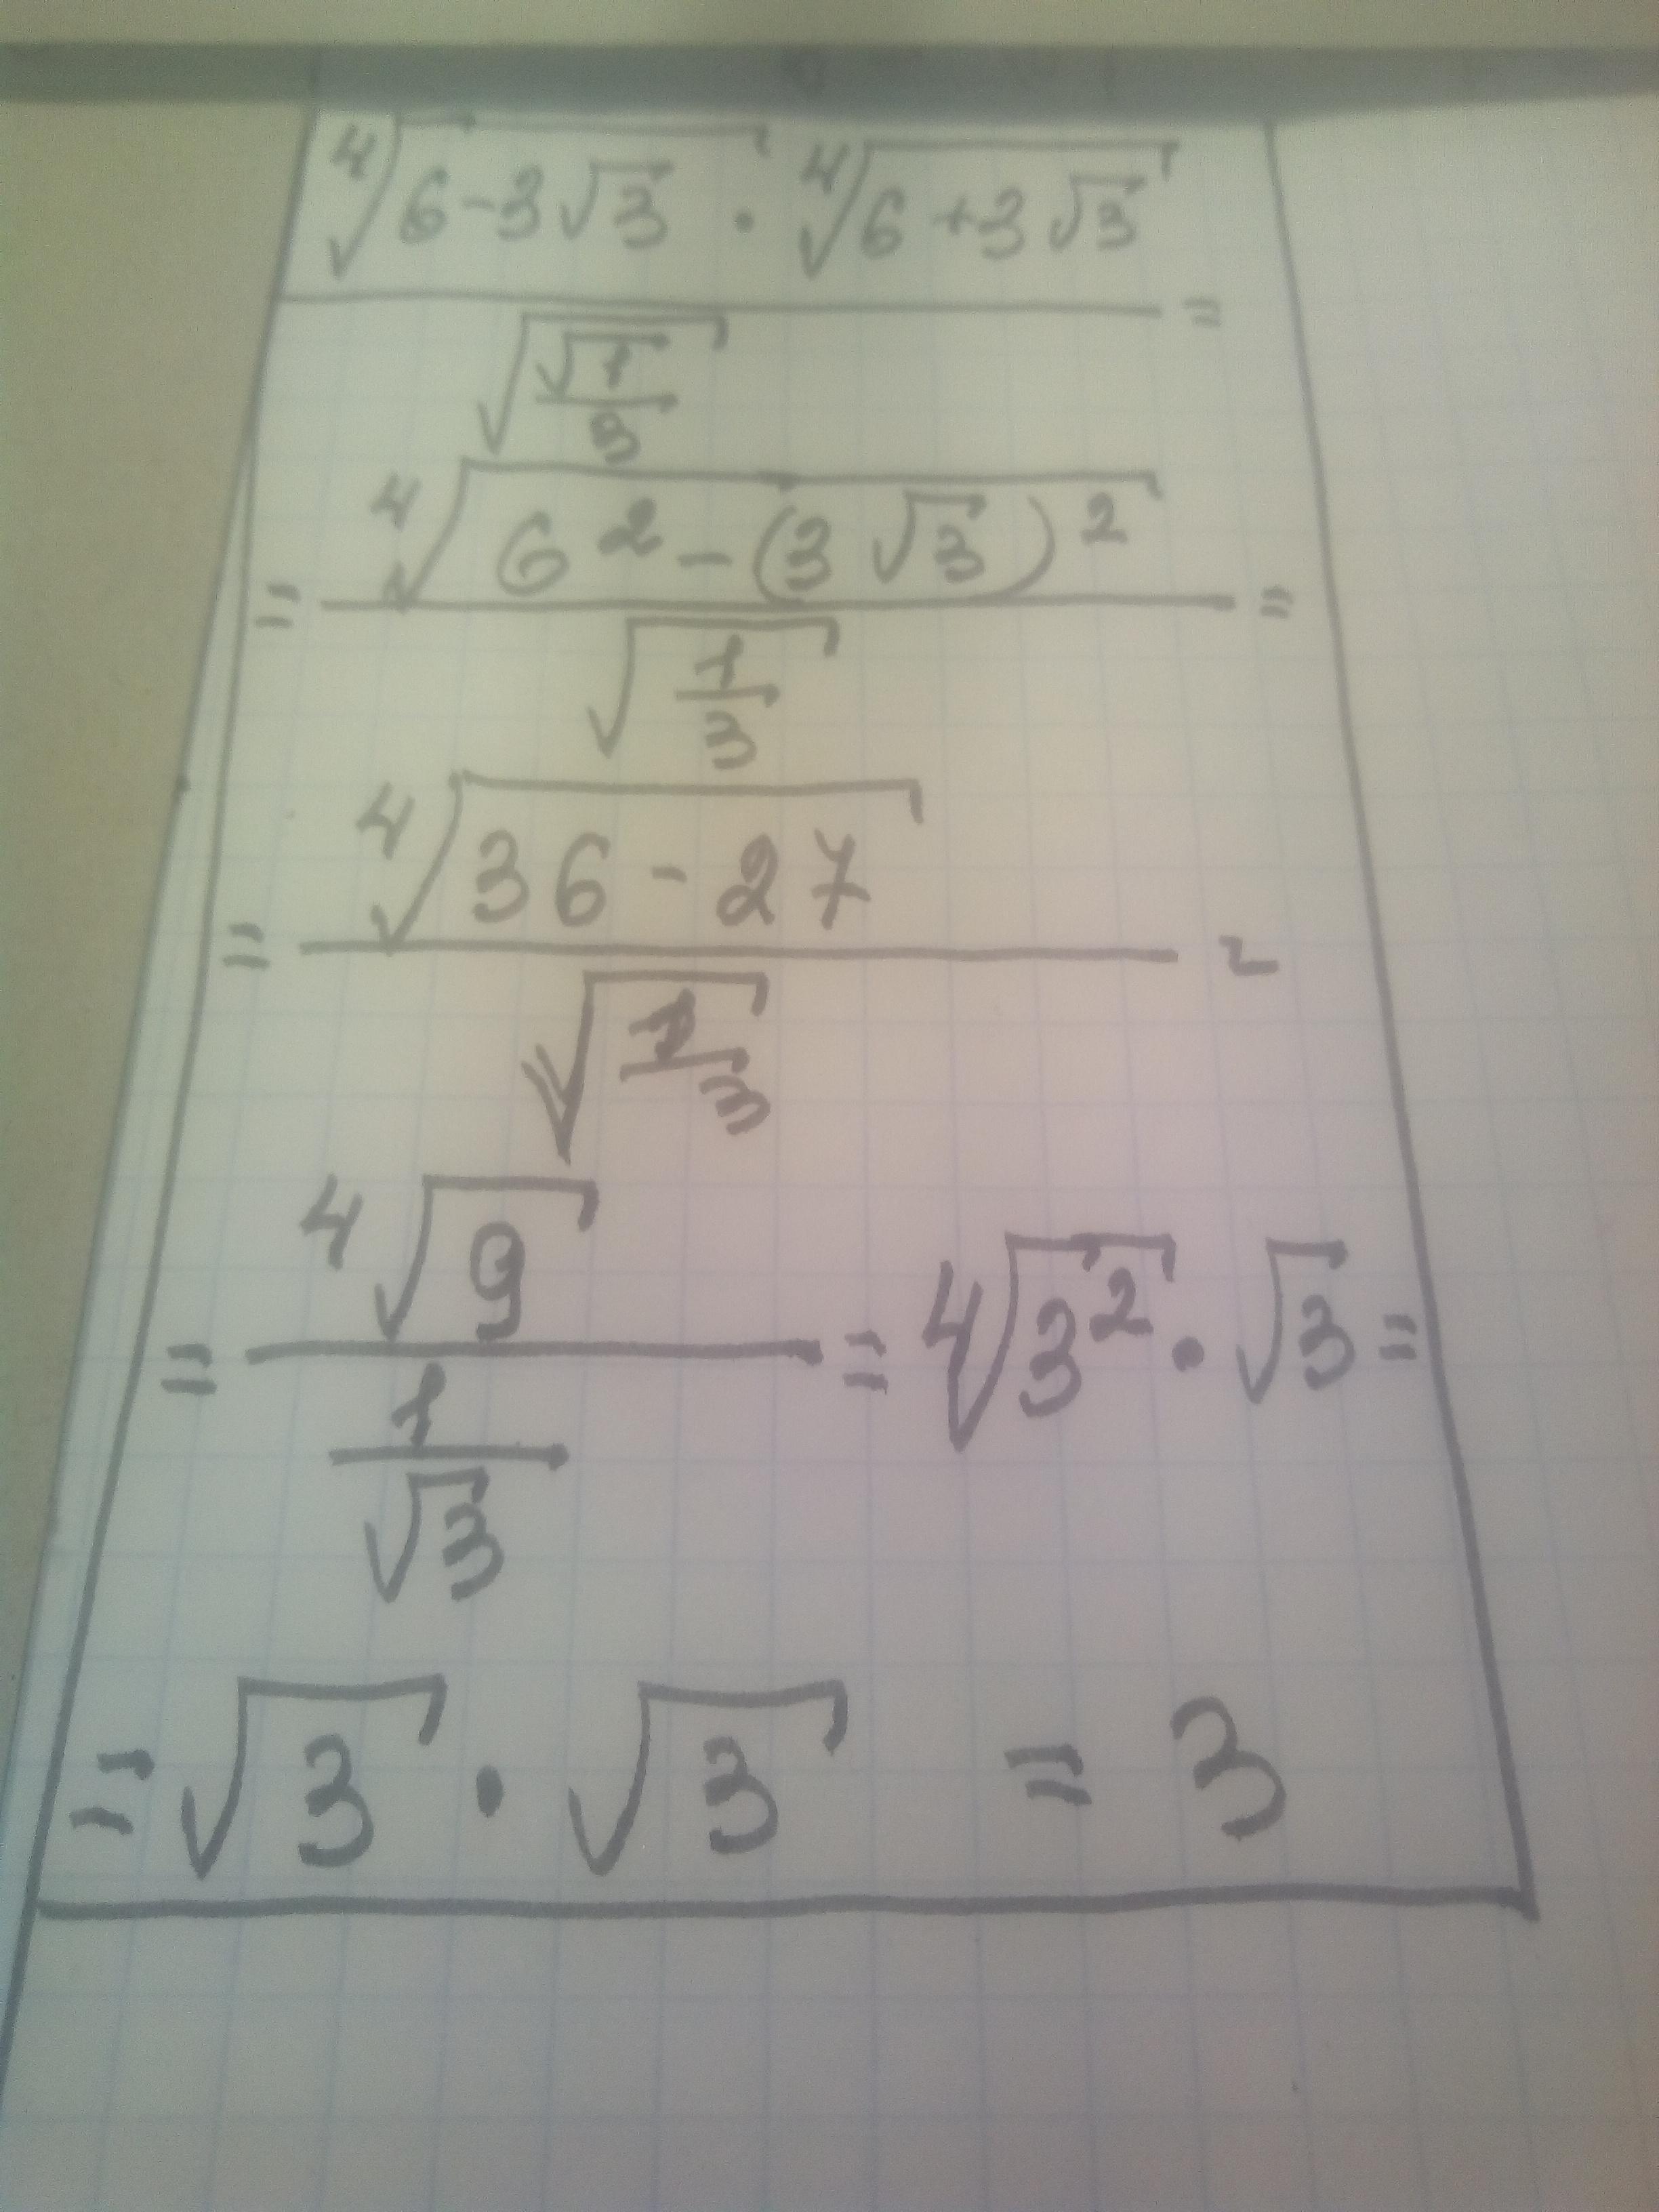 ⁴√(6-3√3) · ⁴√(6+3√3) / √(√1/3) =
= ⁴√(6² - (3√3)²) / √(1/3) =
= ⁴√(36 - 27) / √(1/3) =
= ⁴√9 / (1/√3) = ⁴√(3²) · √3 =
= √3 · √3 = 3